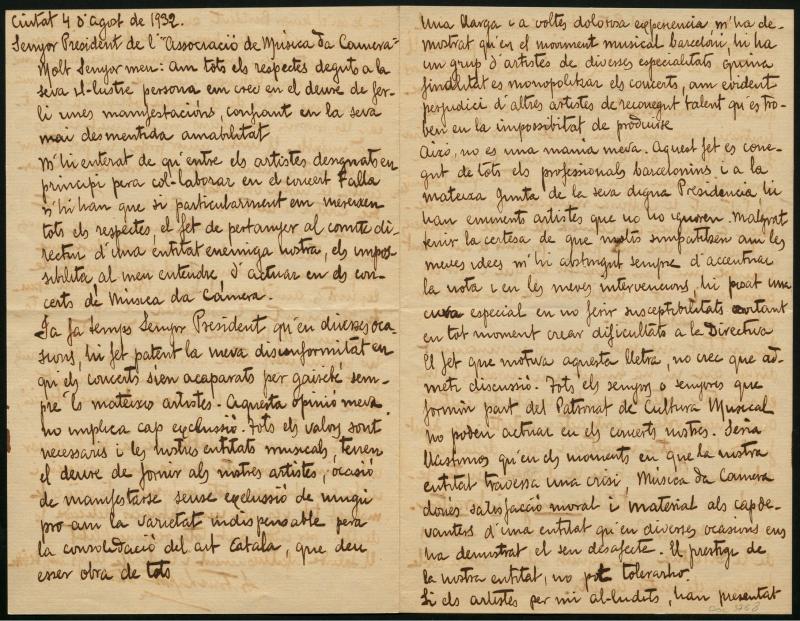 Ciutat 4 d'agost de 1932.
Senyor President de l'"Associació de Música da Camera"
Molt Senyor meu: Am tots els respectes deguts a la
seva il-lustre persona em crec en el deure de fer-
li unes manifestacións, confiant en la seva
mai desmentida amabilitat
M'hi enterat de qu'entre els artistes designats en
principi pera col-laborar en el concert Falla
n'hi han que si particularment em mereixen
tots els respectes el fet de pertanyer al comite di-
rectiu d'una entitat enemiga nostra, els impos-
sibilita al meu entendre d'actuar en els con-
certs de Música da Cámera.
Ja fa temps Senyor President qu'en diverses oca-
sions, hi fet patent la meva disconformitat en
qu'els concerts sien acaparats per gaisebé sem-
pre 'ls mateixos artistes. Aquesta opinió meva
no implica cap exclussió. Tots els valors sont
necessaris i les nostres entitats musicals, tenen
el deure de fornir als nostres artistes, ocasió
de manifestarse sense exclussió de ningú
pro am la varietat indispensable pera
la consolidació del art Catalá, que deu
esser obra de tots
Una llarga i a voltes dolorosa experiencia m'ha de-
mostrat qu'en el moment musical barceloní, hi ha
un grup d'artistes de diverses especialitats quina
finalitat es monopolitzar els concerts, am evident
perjudici d'altres artistes de reconegut talent qu'es tro-
ben en la impossibitat de produirse
Aixó, no es una mania meva. Aquest fet es cone-
gut de tots els professionals barcelonins i a la
mateixa Junta de la seva digna Presidencia hi
han eminents artistes que no ho ignoren. Malgrat
tenir la certesa de que molts simpatitzen am les
meves idees m'hi abstingut sempre d'accentuar
la nota i en les meves intervencions, hi posat una
cura especial en no ferir susceptibilitats evitant
en tot moment crear dificultats a la Directiva
El fet que motiva aquesta lletra, no crec que ad-
meti discussió. Tots els senyors o senyores que
formin part del Patronat de Cultura Musical
no poden actuar en els concerts nostres. Seria
llastimos qu'en els moments en que la nostra
entitat travessa una crisi, Música da Camera
dones satisfacció moral i material als capde-
vanters d'una entitat qu'en diverses ocasions ens
ha demostrat el seu desafecte. El prestigi de
la nostra entitat, no pot tolerarho.
Si els artistes per mi al-ludits, han presentat